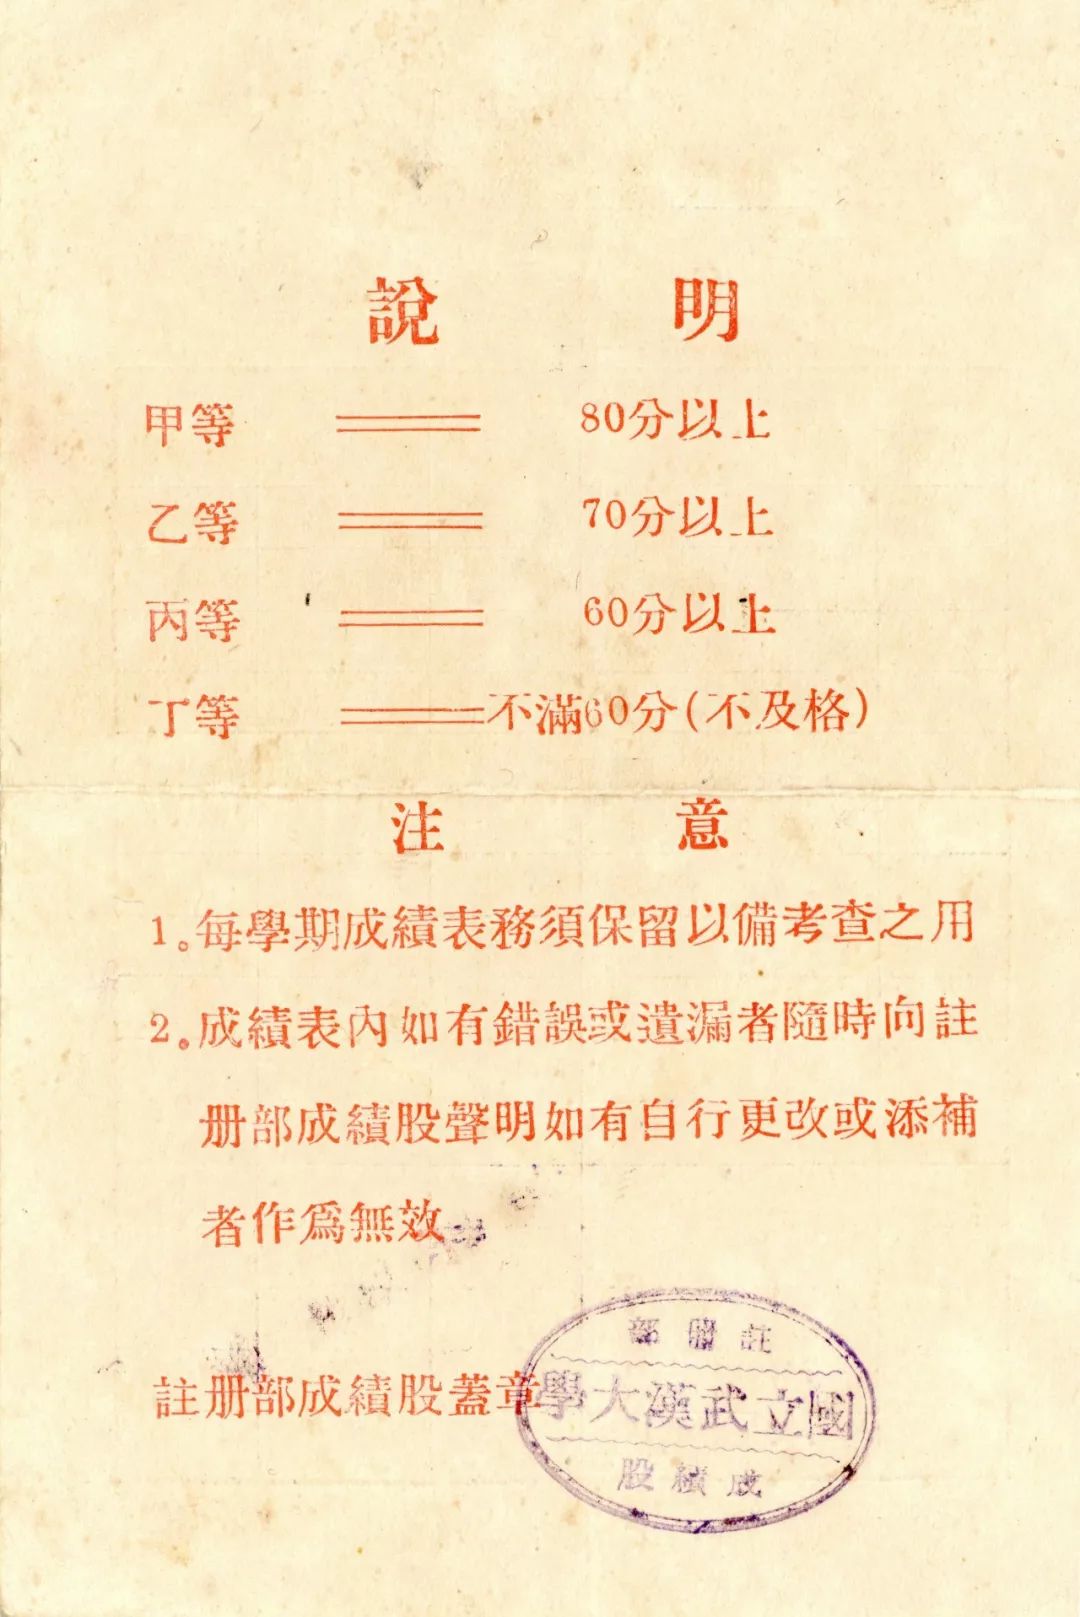 說 明
甲等 ══ 80分以上
乙等 ══ 70分以上
丙等 ══ 60分以上
丁等 ══ 不滿60分(不及格)
注 意
1。每學期成績表務須保留以備考查之用
2。成績表內如有錯誤或遺漏者隨時向註
册部成績股聲明如有自行更改或添補
者作爲無效
註册部成績股蓋章
部冊註
學大漢武立國
股績成